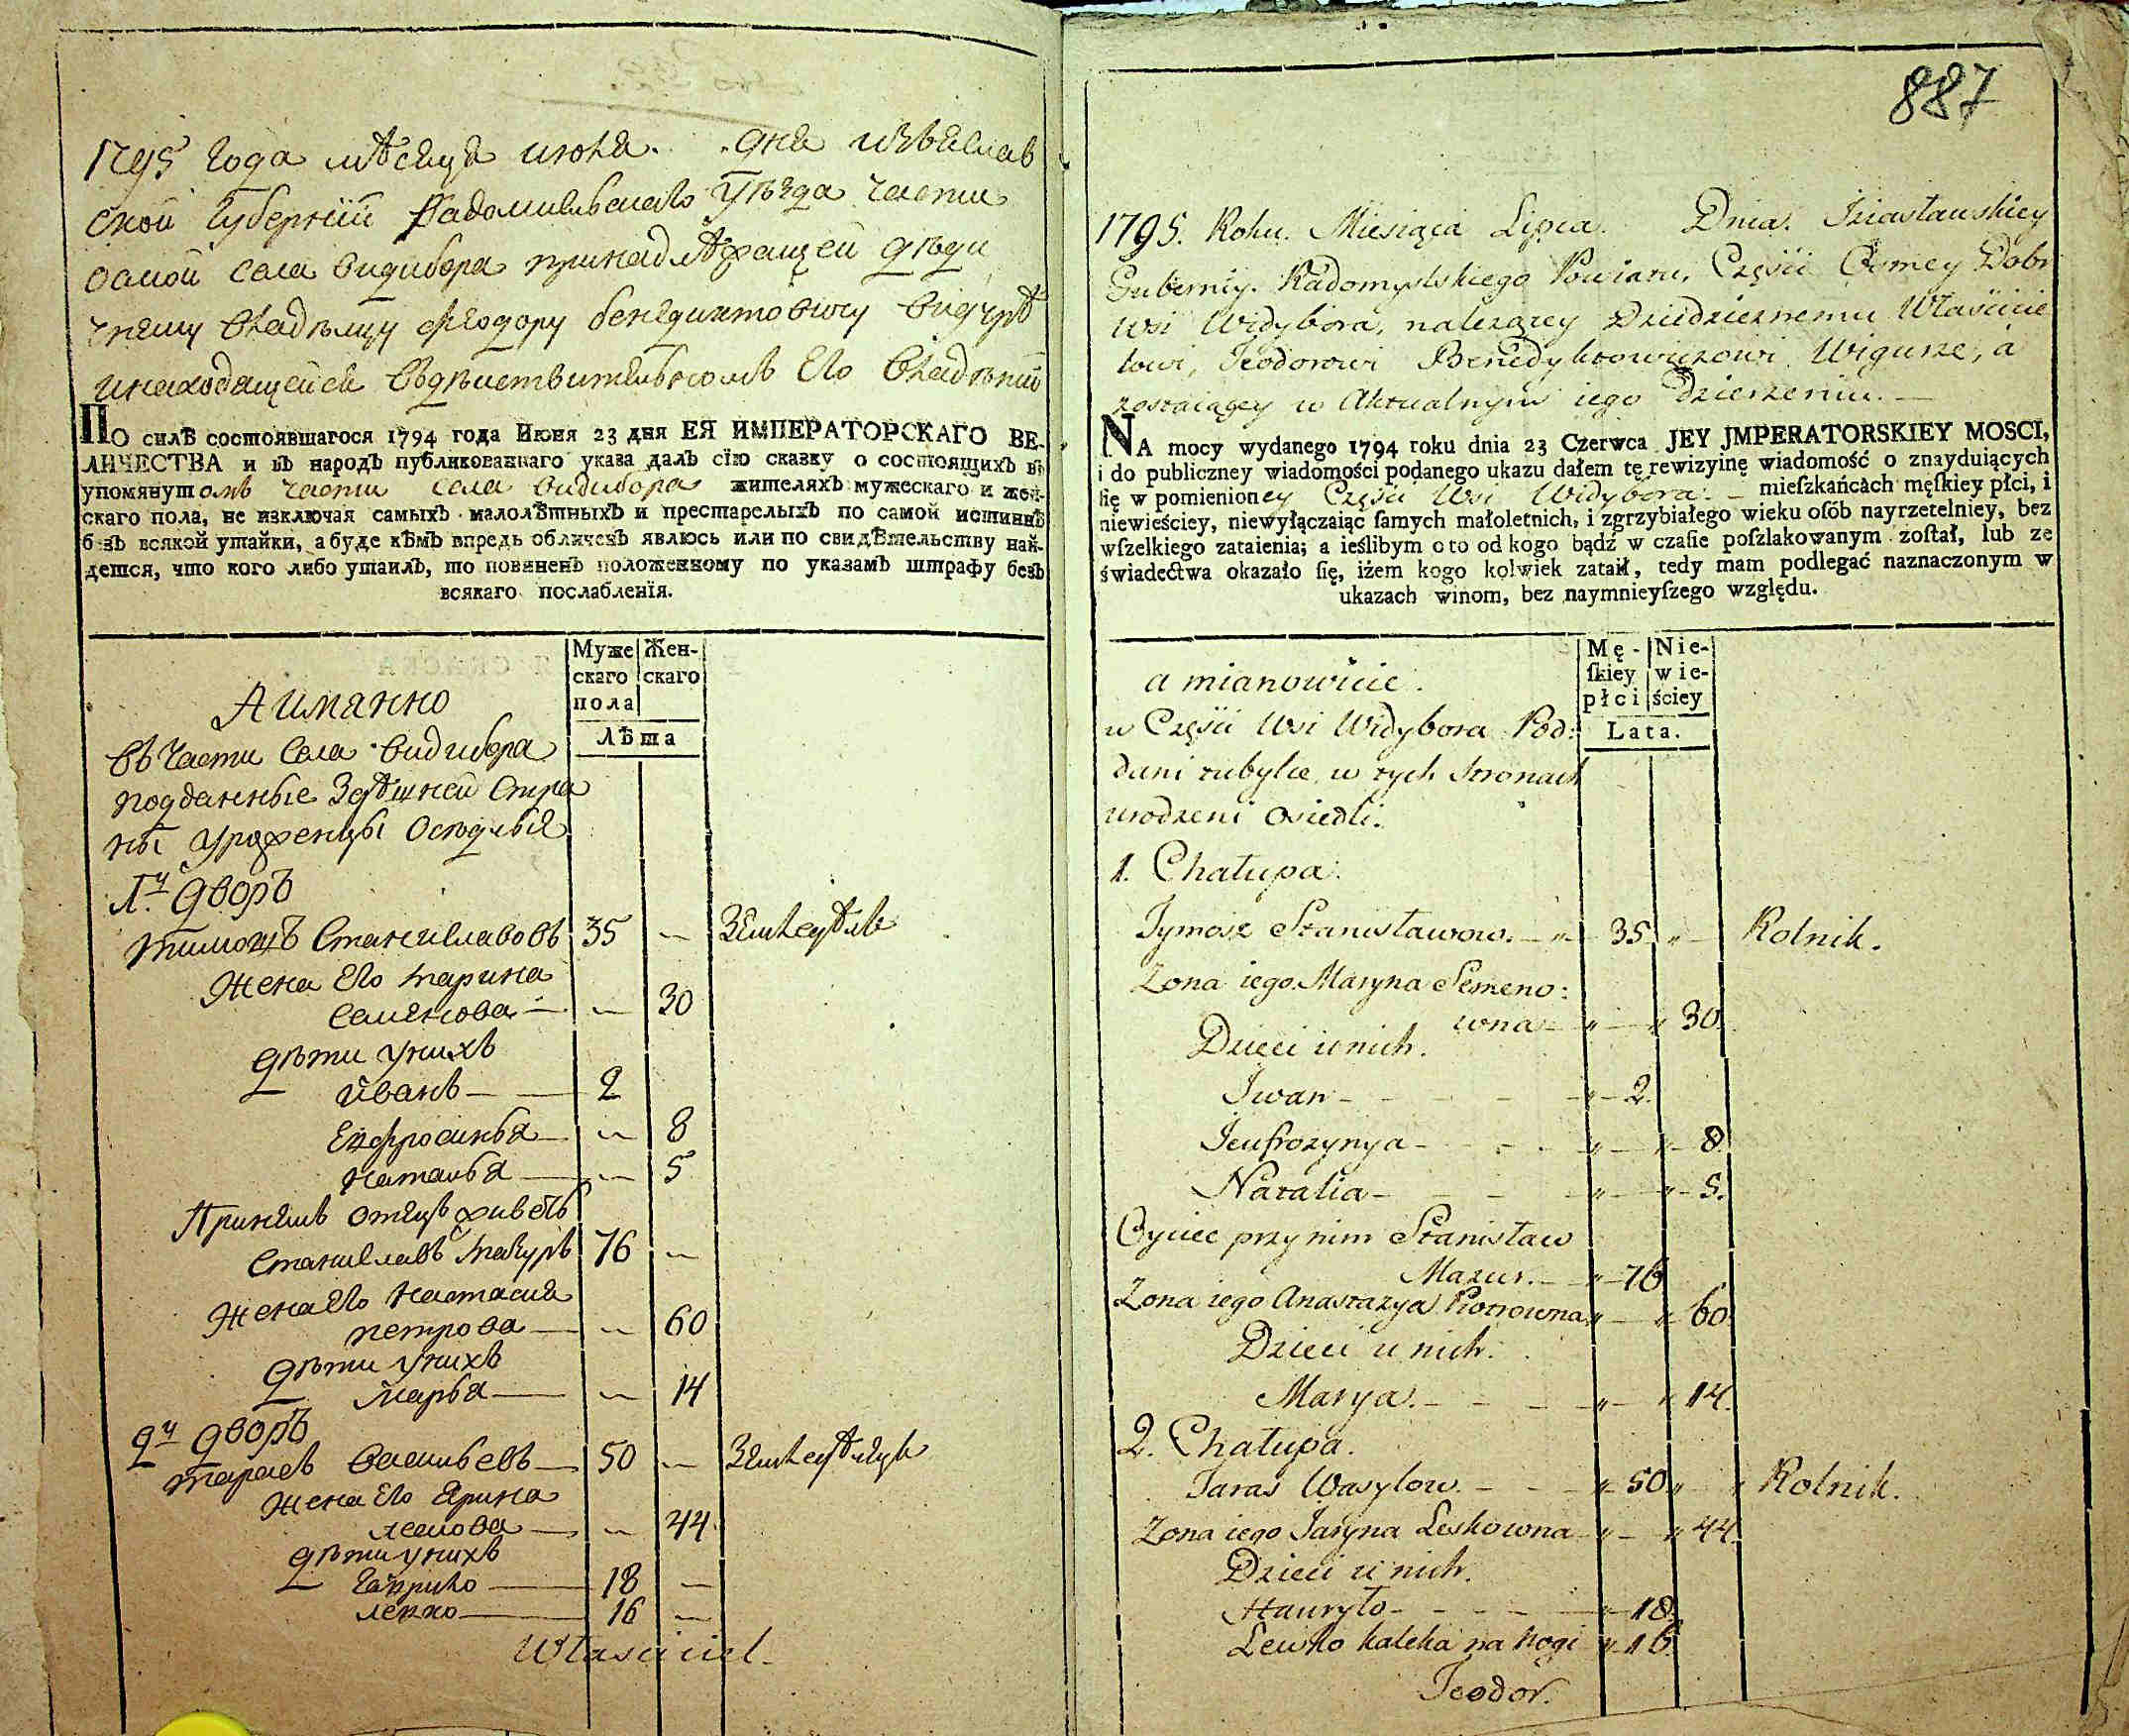 1795 года мѣсяца июля. дня изъяслав
ской губернїи Радомисльскаго уѣзда части
осмой села видибора принадлѣжащей дѣди
чнему владѣлцу Феодору бенедиктовичу вигурѣ
инаходящейся въдѣиствителномъ Его владѣнїи
ПО силѣ состоявшагося 1794 года Июня 23 дня ЕЯ ИМПЕРАТОРСКАГО ВЕ-
ЛИЧЕСТВА и въ народъ публикованнаго указа далъ сїю сказку о состоящихъ въ
упомянутомъ части села видибора жителяхъ мужескаго и жен-
скаго пола, не изключая самыхъ малолѣтныхъ и престарелыхъ по самой истиннѣ
безъ всякой утайки, а буде кѣмъ впредь обличенъ явлюсь или по свидѣтельству най-
дется, что кого либо утаилъ, то повиненъ положенному по указамъ штрафу безъ
всякаго послабленїя.
Муже Жен-
скаго скаго
пола
Лѣта
Аиманно
въ части села видибора
подданные здѣшней стра
ны уроженцы оседлыя
1.й дворъ
тимошъ Станиславовъ 35 — Земледѣлъ
жена Его марина
семенова — — 30
дѣти унихъ
иванъ — 2
Ефросинья — — 8
наталья — — 5
Принемъ отецъ живетъ
Станиславъ мазуръ 76 —
жена Его настасия
петрова — — 60
дѣти унихъ
марья — — 14
2й дворъ
тарасъ васильевъ — 50 — Земледѣлецъ
жена Его Ярина
лескова — — 44
дѣти унихъ
гаврило — 18 —
левко — 16 —
Właściciel
887
1795. Roku. Miesiąca Lipca. Dnia. Iziasławskiey
Gubernij. Radomyslskiego Powiatu, Części Osmey Dobr
Wsi Widybora, należącey Dziedzicznemu Właścicie
lowi, Teodorowi Benedyktowiczowi Wigurze, a
zostaiącey w Aktualnym iego Dzierżeniu. —
NA mocy wydanego 1794 roku dnia 23 Czerwca JEY JMPERATORSKIEY MOSCI,
i do publiczney wiadomości podanego ukazu dałem tę rewizyinę wiadomość o znayduiących
ſię w pomienioney Części Wsi Widybora. — mieſzkańcach męſkiey płci, i
niewieściey, niewyłączaiąc ſamych małoletnich, i zgrzybiałego wieku oſób nayrzetelniey, bez
wſzelkiego zataienia; a ieślibym o to od kogo bądź w czaſie poſzlakowanym zoſtał, lub ze
świadectwa okazało ſię, iżem kogo kolwiek zataił, tedy mam podlegać naznaczonym w
ukazach winom, bez naymnieyſzego względu.
Mę- Nie-
ſkiey wie-
płci ściey
Lata.
a mianowicie.
w Części Wsi Widybora Pod:
dani tubylce, w tych Stronach
urodzeni osiedli.
1. Chałupa.
Tymosz Stanisławow. — „ — 35 „ — Rolnik.
Zona iego Maryna Semeno:
wna — „ — „ 30.
Dzieci u nich.
Iwan - - - - „ — 2.
Jeufrozynya - - - - „ — „ — 8.
Natalia - - - - „ — „ — 5.
Oyciec przy nim Stanisław
Mazur. — „ — 76
Zona iego Anastazya Piotrowna „ — „ 60.
Dzieci u nich.
Marya. - - - „ — „ 14.
2. Chałupa.
Taras Wasylow. - - - „ — 50. „ „ Rolnik.
Zona iego Jaryna Leskowna „ — „ 44.
Dzieci u nich.
Hauryło - - - - „ — 18.
Lewko kaleka na Nogi „ — 16.
Teodor.